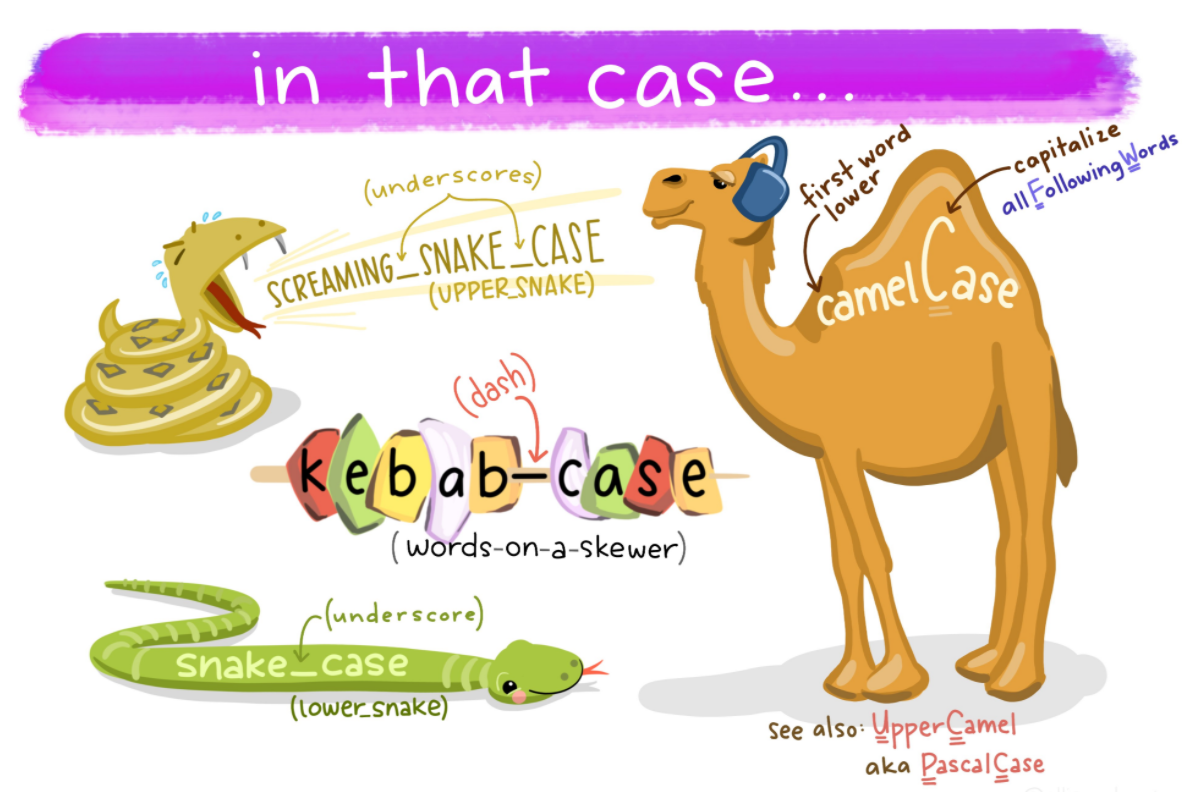 in that case...
(underscores)
SCREAMING_SNAKE_CASE
(UPPER_SNAKE)
first word
lower
capitalize
allFollowingWords
camelCase
(dash)
kebab-case
(words-on-a-skewer)
(underscore)
snake_case
(lower_snake)
see also: UpperCamel
aka PascalCase